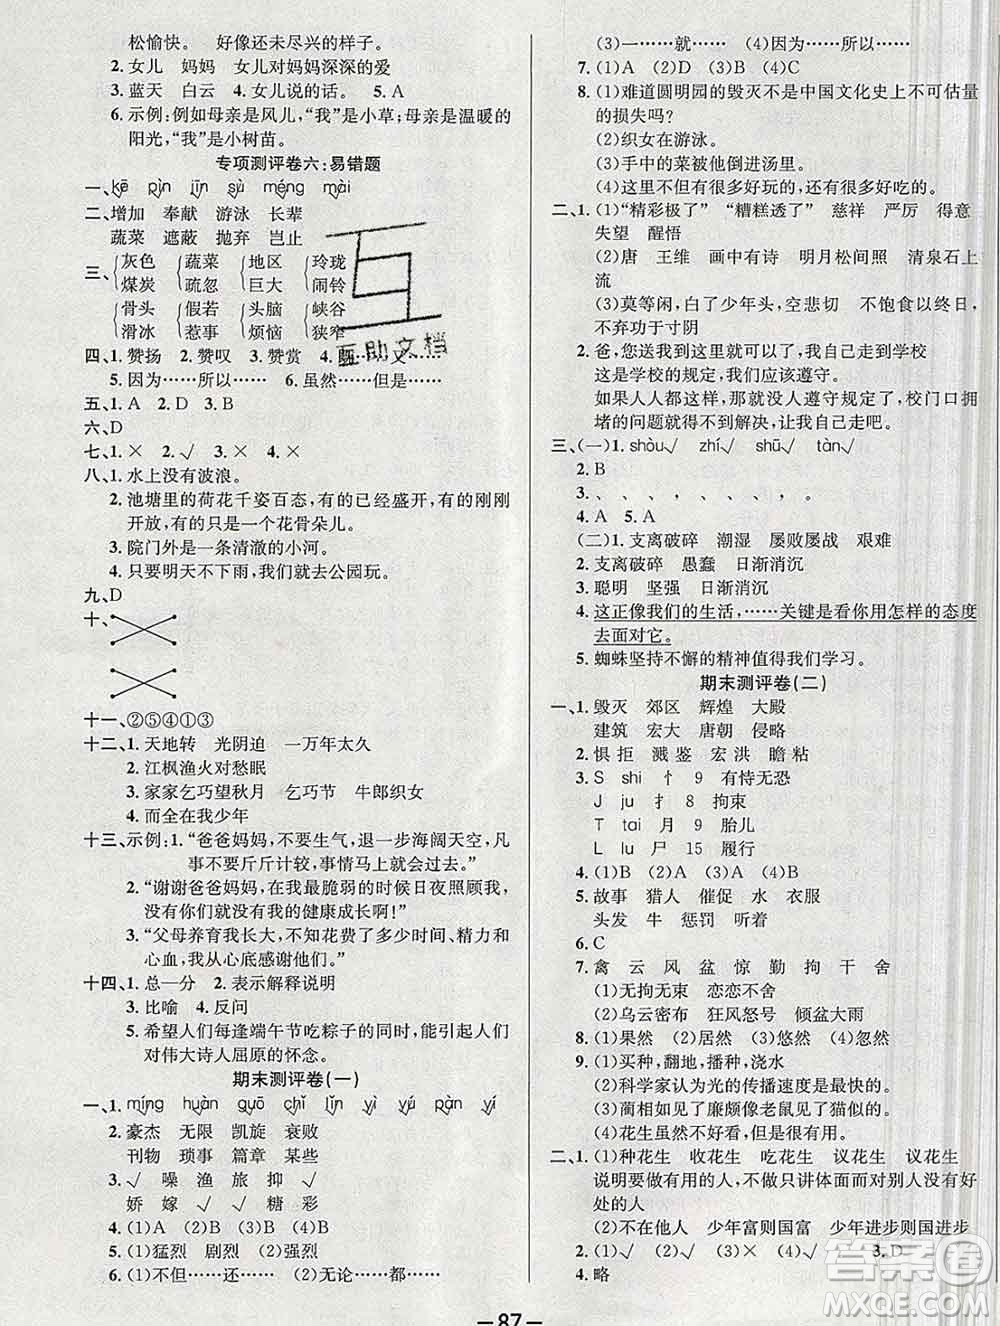 松愉快。 好像还未尽兴的样子。
2. 女儿 妈妈 女儿对妈妈深深的爱
3. 蓝天 白云 4. 女儿说的话。 5. A
6. 示例:例如母亲是风儿,“我”是小草;母亲是温暖的
阳光,“我”是小树苗。
专项测评卷六:易错题
一、kē pìn jīn sù méng mài
二、增加 奉献 游泳 长辈
蔬菜 遮蔽 抛弃 岂止
三、 灰色 蔬菜 地区 玲珑
煤炭 疏忽 巨大 闹铃
骨头 假若 头脑 峡谷
滑冰 惹事 烦恼 狭窄
四、1. 赞扬 2. 赞叹 3. 赞赏 4. 既……又……
5. 因为……所以…… 6. 虽然……但是……
五、1. A 2. D 3. B
六、D
七、1. × 2. √ 3. × 4. ×
八、1. 水上没有波浪。
2. 池塘里的荷花千姿百态,有的已经盛开,有的刚刚
开放,有的只是一个花骨朵儿。
3. 院门外是一条清澈的小河。
4. 只要明天不下雨,我们就去公园玩。
九、D
十、
十一、②⑤④①③
十二、1. 天地转 光阴迫 一万年太久
2. 江枫渔火对愁眠
3. 家家乞巧望秋月 乞巧节 牛郎织女
4. 而全在我少年
十三、示例:1. “爸爸妈妈,不要生气,退一步海阔天空,凡
事不要斤斤计较,事情马上就会过去。”
2. “谢谢爸爸妈妈,在我最脆弱的时候日夜照顾我,
没有你们就没有我的健康成长啊!”
3. “父母养育我长大,不知花费了多少时间、精力和
心血,我从心底感谢他们。”
十四、1. 总—分 2. 表示解释说明
3. 比喻 4. 反问
5. 希望人们每逢端午节吃粽子的同时,能引起人们
对伟大诗人屈原的怀念。
期末测评卷(一)
一、1. míng huàn guō chǐ lǐn yì yú pàn yí
2. 豪杰 无限 凯旋 衰败
刊物 琐事 篇章 某些
3. √ 噪 渔 旅 抑 √
娇 嫁 √ √ 糖 彩
4. (1)A (2)B (3)B (4)B
5. (1)猛烈 剧烈 (2)强烈
6. (1)不但……还…… (2)无论……都……
(3)一……就…… (4)因为……所以……
7. (1)A (2)D (3)B (4)C
8. (1)难道圆明园的毁灭不是中国文化史上不可估量
的损失吗?
(2)织女在游泳。
(3)手中的菜被他倒进汤里。
(4)这里不但有很多好玩的,还有很多好吃的。
二、1. (1)“精彩极了” “糟糕透了” 慈祥 严厉 得意
失望 醒悟
(2)唐 王维 画中有诗 明月松间照 清泉石上
流
(3)莫等闲,白了少年头,空悲切 不饱食以终日,
不弃功于寸阴
2. 爸,您送我到这里就可以了,我自己走到学校
这是学校的规定,我们应该遵守。
如果人人都这样,那就没人遵守规定了,校门口拥
堵的问题就得不到解决,让我自己走吧。
三、(一)1. shòu√ zhí√ shū√ tàn√
2. B
3. 、 、 、 , 、 、 、 。
4. A 5. A
(二)1. 支离破碎 潮湿 屡败屡战 艰难
2. 支离破碎 愚蠢 日渐消沉
3. 聪明 坚强 日渐消沉
4. 这正像我们的生活,……关键是看你用怎样的态度
去面对它。
5. 蜘蛛坚持不懈的精神值得我们学习。
期末测评卷(二)
一、1. 毁灭 郊区 辉煌 大殿
建筑 宏大 唐朝 侵略
2. 惧 拒 溅 鉴 宏 洪 瞻 粘
3. S shi 忄 9 有恃无恐
J ju 扌 8 拘束
T tai 月 9 胎儿
L lu 尸 15 履行
4. (1)B (2)A (3)A (4)B
5. 故事 猎人 催促 水 衣服
头发 牛 惩罚 听着
6. C
7. 禽 云 风 盆 惊 勤 拘 干 舍
(1)无拘无束 恋恋不舍
(2)乌云密布 狂风怒号 倾盆大雨
8. (1)果然 (2)居然 (3)悠然 (4)忽然
9. (1)买种,翻地,播种,浇水
(2)科学家认为光的传播速度是最快的。
(3)蔺相如见了廉颇像老鼠见了猫似的。
(4)花生虽然不好看,但是很有用。
二、1. (1)种花生 收花生 吃花生 议花生 议花生
说明要做有用的人,不做只讲体面而对别人没有好
处的人
(2)不在他人 少年富则国富 少年进步则国进步
2. (1)√ (2)√ (3)× (4)√ 3. D
4. 略
互助文档
答案圈
MXQE.COM
— 87 —